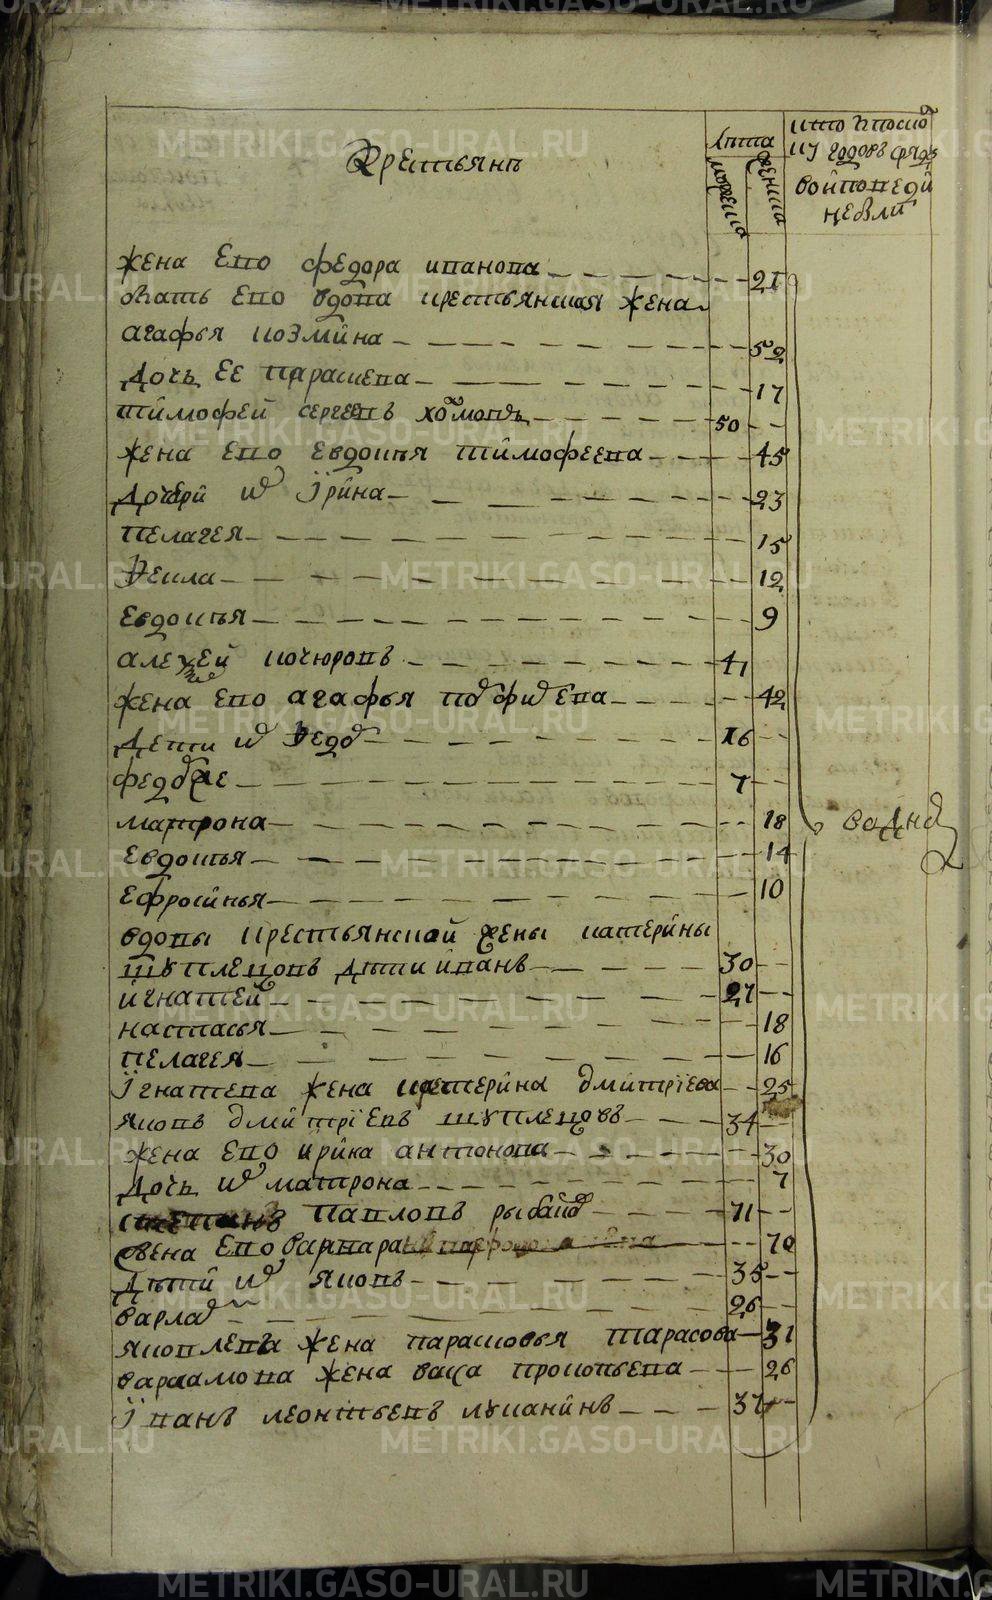 METRIKI.GASO-URAL.RU
Крестьянъ
лѣта
мужеска
женска
кто коспо
ву годовъ
жена ево федора иванова 21
мать ево вдова крестьянская жена
агафья козмина 52
дочь ее параскева 17
тимофей сергеевъ хомовъ 50
жена ево евдокия тимофеева 45
дочери их Ірина 23
пелагея 15
Фекла 12
евдокия 9
алексей кочюровъ 41
жена ево агафья порфирева 42
дети их Федор 16
федосие 7
матрона 18
евдокия 14
ефросинья 10
вдовы крестьянской жены катерины
шуплецовъ дѣти иванъ 30
игнатей 27
настасья 18
пелагея 16
Ігнатева жена катерина дмитріева 25
яковъ дмитріевъ шуплецовъ 34
жена ево ирина антонова 30
дочь их матрона 7
павловъ рыбаков 71
жена ево варвара 70
дѣти их яковъ 35
варлам 26
яковлева жена парасковья тарасова 31
варламова жена васа прокопьева 26
Іванъ леонтьевъ луканинъ 37